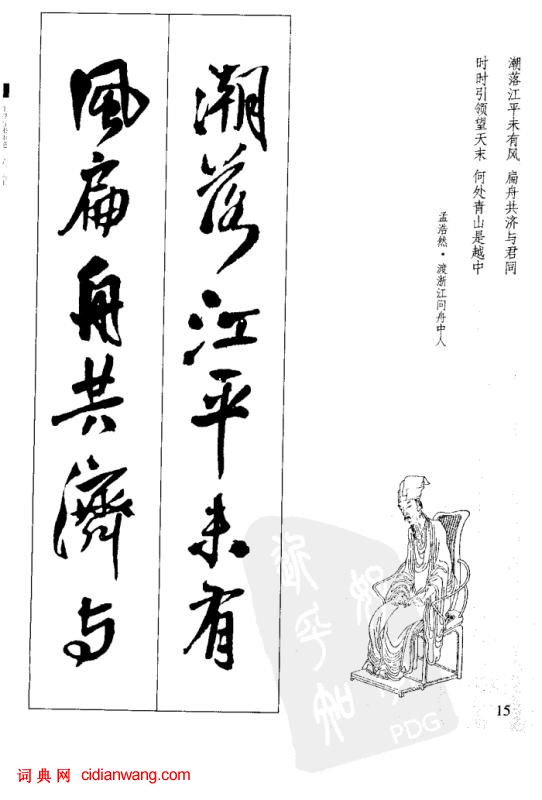 潮落江平未有风 扁舟共济与君同
时时引领望天末 何处青山是越中
孟浩然·渡浙江问舟中人
潮落江平未有
風扁舟共濟与
15
PDG
词典网 cidianwang.com